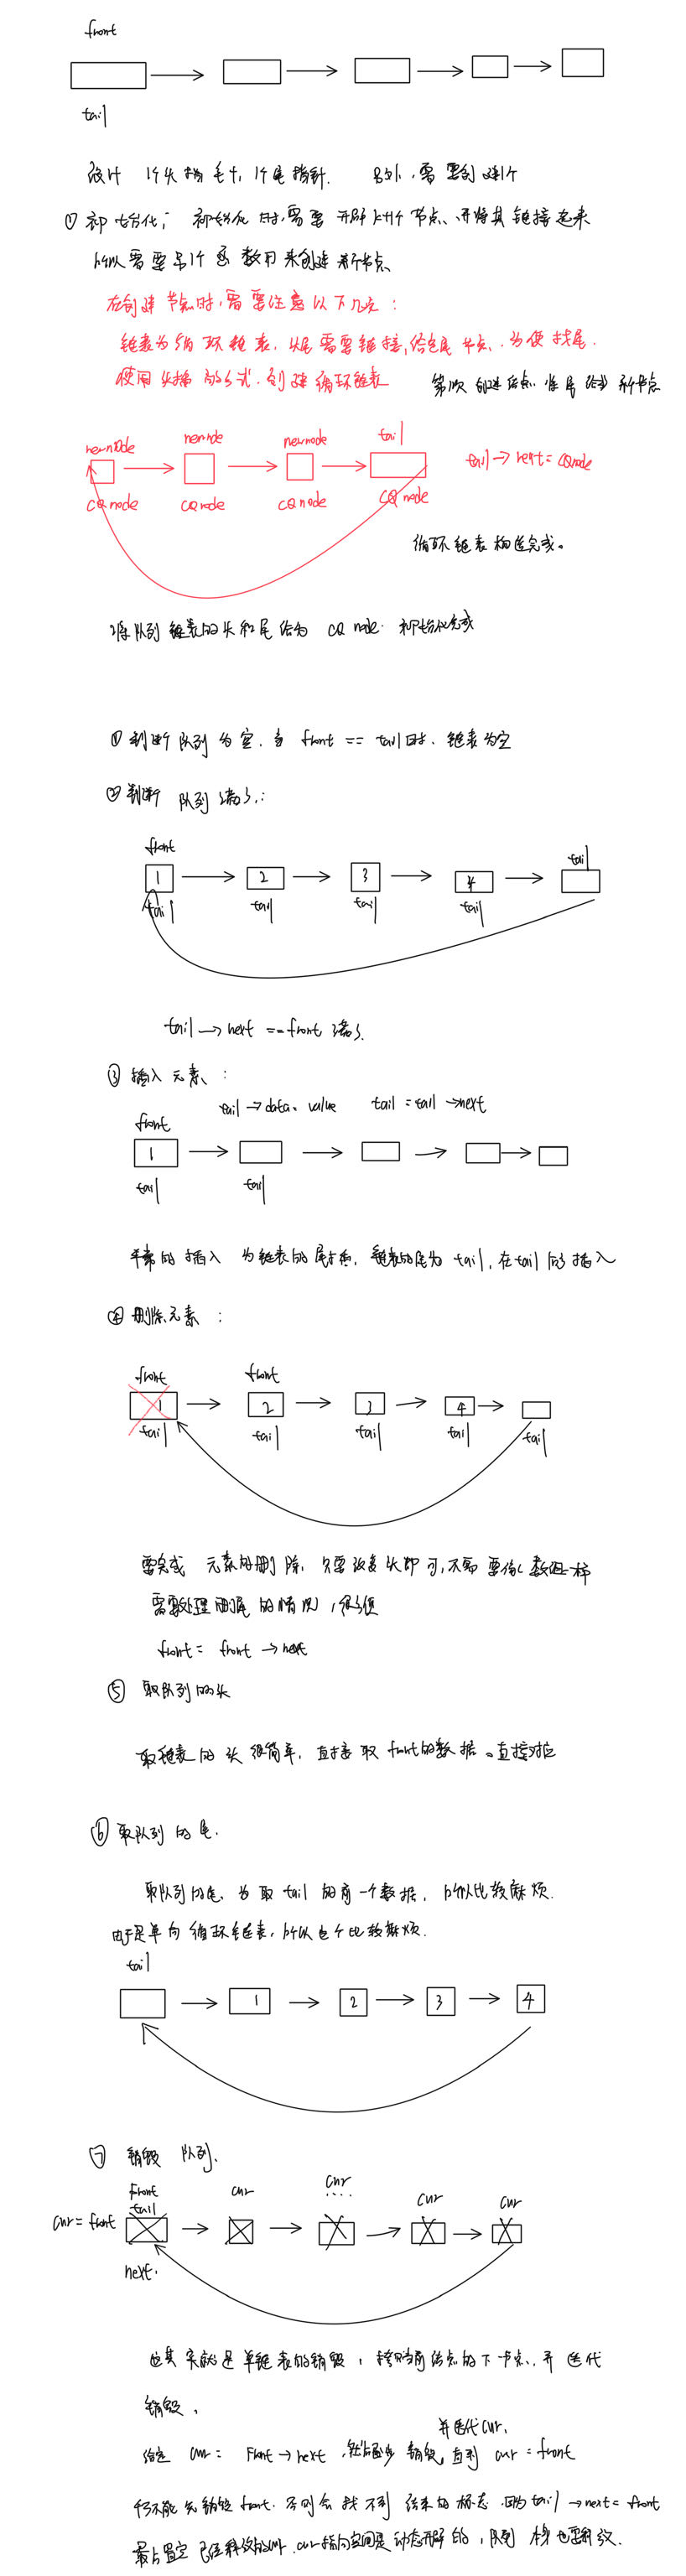 front
tail
设计 1个头指针, 1个尾指针. 另外, 需要创建1个
① 初始化; 初始化时, 需要开辟k+1个节点、并将其链接起来
所以需要另1个函数用来创建新节点、
在创建节点时, 需要注意以下几点:
链表为循环链表, 头尾需要链接, 给定尾节点, 方便找尾.
使用头插的方式. 创建循环链表
第1次创建结点. 将尾给为新节点
newnode newnode newnode tail
tail → next = CQnode
CQnode CQnode CQnode CQnode
循环链表构造完成。
将队列链表的头和尾给为 CQnode. 初始化完成
① 判断队列为空. 当 front == tail时. 链表为空
② 判断队列满了:
front
tail
1 2 3 4
tail tail tail tail
tail → next == front 满了.
③ 插入元素:
tail → data = value tail = tail → next
front
1
tail tail
的插入为链表的尾插, 链表的尾为 tail, 在tail 插入
④ 删除元素:
front front
1 2 3 4
tail tail tail tail tail
要完成元素的删除, 只需改变头即可, 不需要像数组一样
需要处理 的情况, 很方便
front = front → next
⑤ 取队列的头
取链表的头很简单, 直接取front的数据。直接对应
⑥ 取队列的尾.
取队列的尾、为取 tail 的前一个数据, 所以比较麻烦.
由于是单向循环链表, 所以 比较麻烦.
tail
1 2 3 4
⑦ 销毁队列.
front
tail
cur cur cur cur
....
cur = front
next.
也其实就是单链表的销毁, 找到当前结点的下 节点, 并迭代
销毁,
并迭代cur,
给定 cur = Front → next, 销毁, 直到 cur = front
不能先销毁front. 否则会找不到结束的标志. 因为tail → next = front
最后置空 cur指向空间是动态开辟的, 队列本身也要释放.